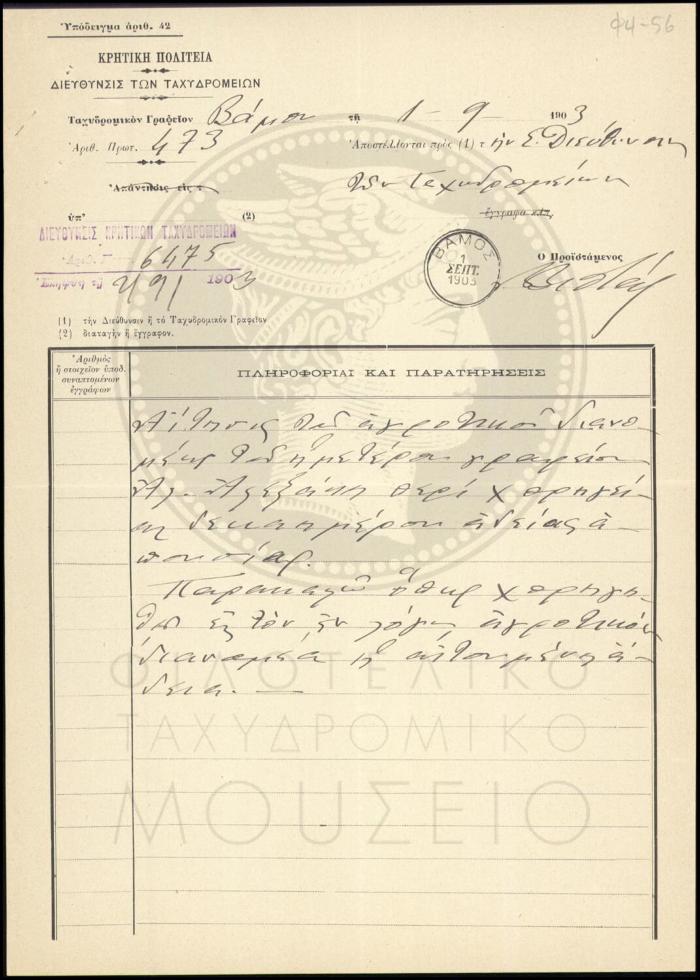 Ὑπόδειγμα ἀριθ. 42
Φ4-56
ΚΡΗΤΙΚΗ ΠΟΛΙΤΕΙΑ
ΔΙΕΥΘΥΝΣΙΣ ΤΩΝ ΤΑΧΥΔΡΟΜΕΙΩΝ
Ταχυδρομικὸν Γραφεῖον Βάμου τῇ 1-9 1903
Ἀριθ. Πρωτ. 473 Ἀποστέλλονται πρὸς (1) τ ὴν Σ. Διεύθυνσιν
Ἀπάντησις εἰς τ τῶν Ταχυδρομείων
ἔγγραφα κ.λ.π.
ὑπ' (2)
ΔΙΕΥΘΥΝΣΙΣ ΚΡΗΤΙΚΩΝ ΤΑΧΥΔΡΟΜΕΙΩΝ
Ἀριθ. Π. 6475
Ἐλήφθη τῇ 2/9/ 1903
ΒΑΜΟΣ
1
ΣΕΠΤ.
1903
Ὁ Προϊστάμενος
(1) τὴν Διεύθυνσιν ἢ τὸ Ταχυδρομικὸν Γραφεῖον
(2) διαταγὴν ἢ ἔγγραφον.
Ἀριθμὸς
ἢ στοιχεῖον ὑποδ.
συναπτομένων
ἐγγράφων
ΠΛΗΡΟΦΟΡΙΑΙ ΚΑΙ ΠΑΡΑΤΗΡΗΣΕΙΣ
Αἴτησις τοῦ ἀγροτικοῦ διανο-
μέως τοῦ ἡμετέρου γραφείου
περὶ χορηγεί-
ας δεκαημέρου ἀδείας ἀ-
πουσίας.
Παρακαλῶ ὅπως χορηγη-
θῇ εἰς τὸν ἐν λόγῳ ἀγροτικὸν
διανομέα ἡ αἰτουμένη ἄ-
δεια.
ΦΙΛΟΤΕΛΙΚΟ
ΤΑΧΥΔΡΟΜΙΚΟ
ΜΟΥΣΕΙΟ